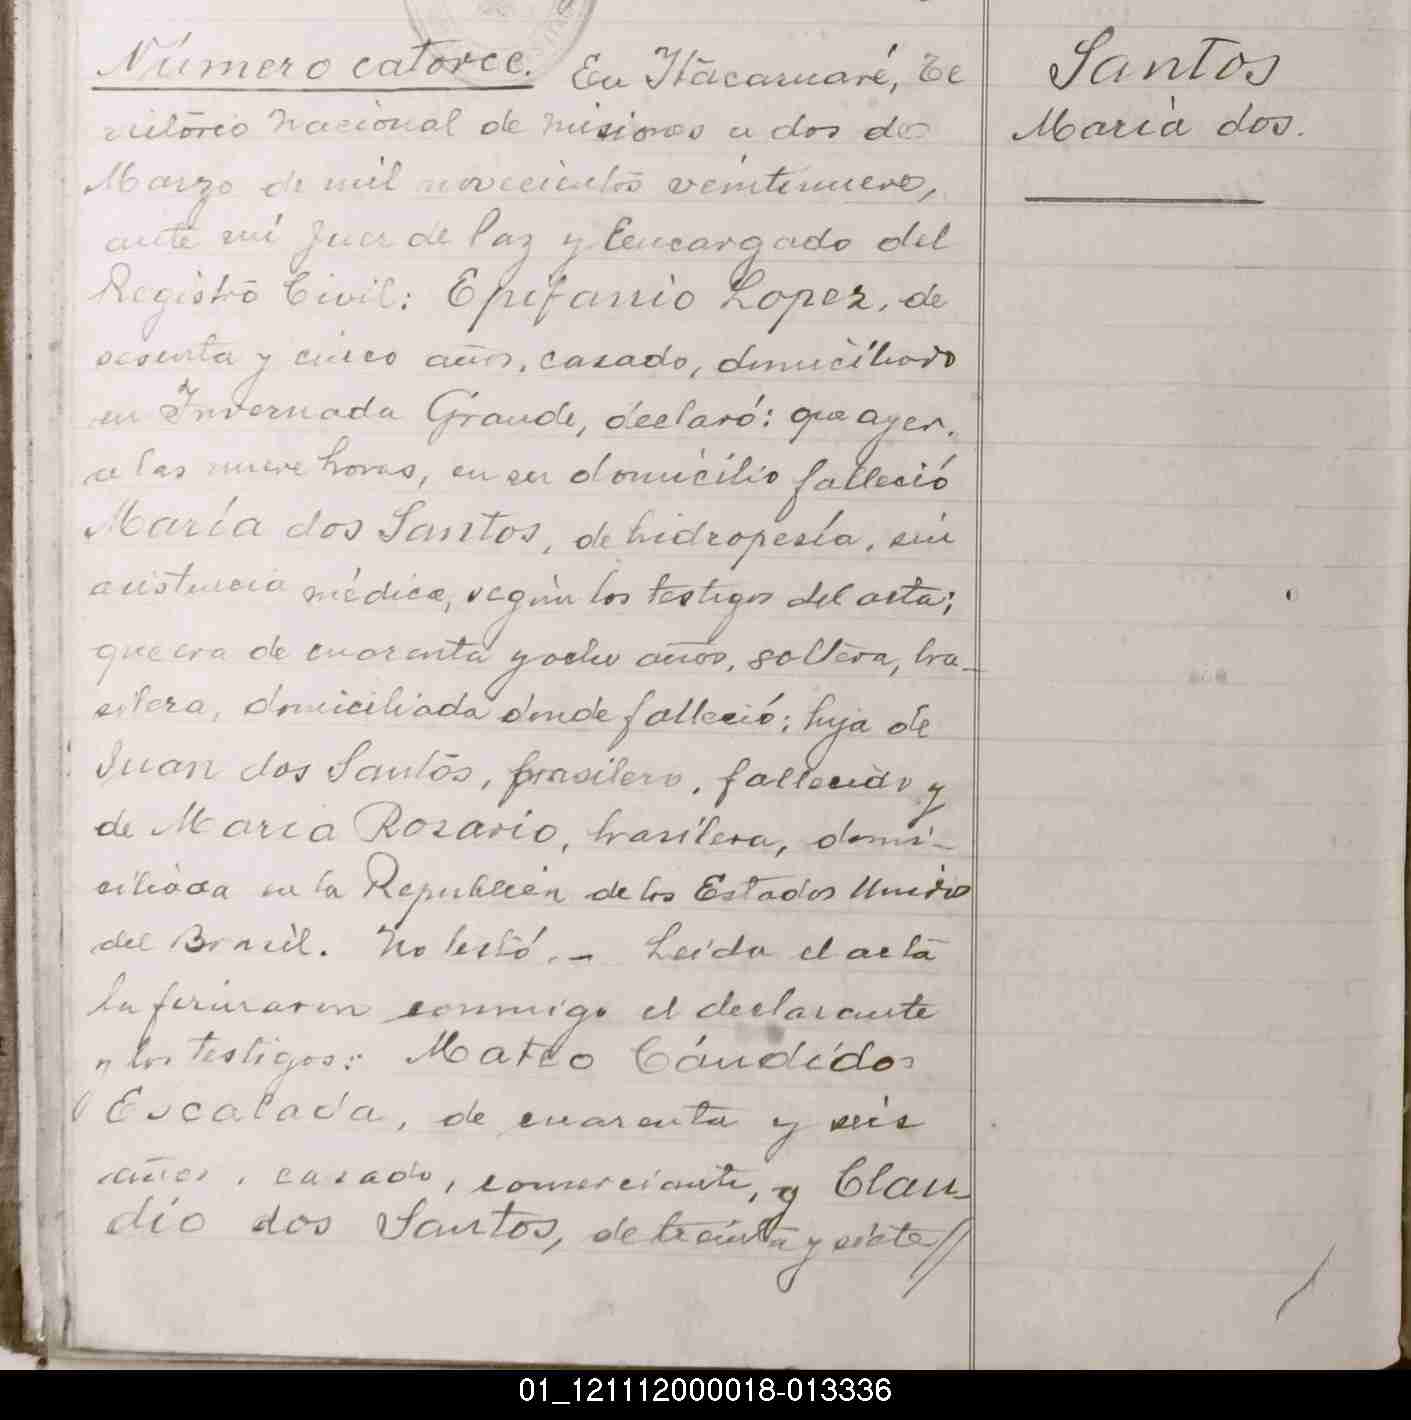 Número catorce. En Itacaruaré, Te
rritorio Nacional de Misiones a dos de
Marzo de mil novecientos veintinueve,
ante mí Juez de Paz y Encargado del
Registro Civil: Epifanio Lopez, de
sesenta y cinco años, casado, domiciliado
en Invernada Grande, declaró: que ayer,
a las nueve horas, en su domicilio falleció
María dos Santos, de hidropesía, sin
asistencia médica, según los testigos del acta;
que era de cuarenta y ocho años, soltera, bra-
silera, domiciliada donde falleció; hija de
Juan dos Santos, brasilero, fallecido y
de Maria Rosario, brasilera, domi-
ciliada en la Republica de los Estados Unidos
del Brasil. No testó. - Leida el acta
la firmaron conmigo el declarante
y los testigos: Mateo Cándido
Escalada, de cuarenta y seis
años, casado, comerciante, y Clau-
dio dos Santos, de treinta y siete//
Santos
Maria dos.
01_121112000018-013336